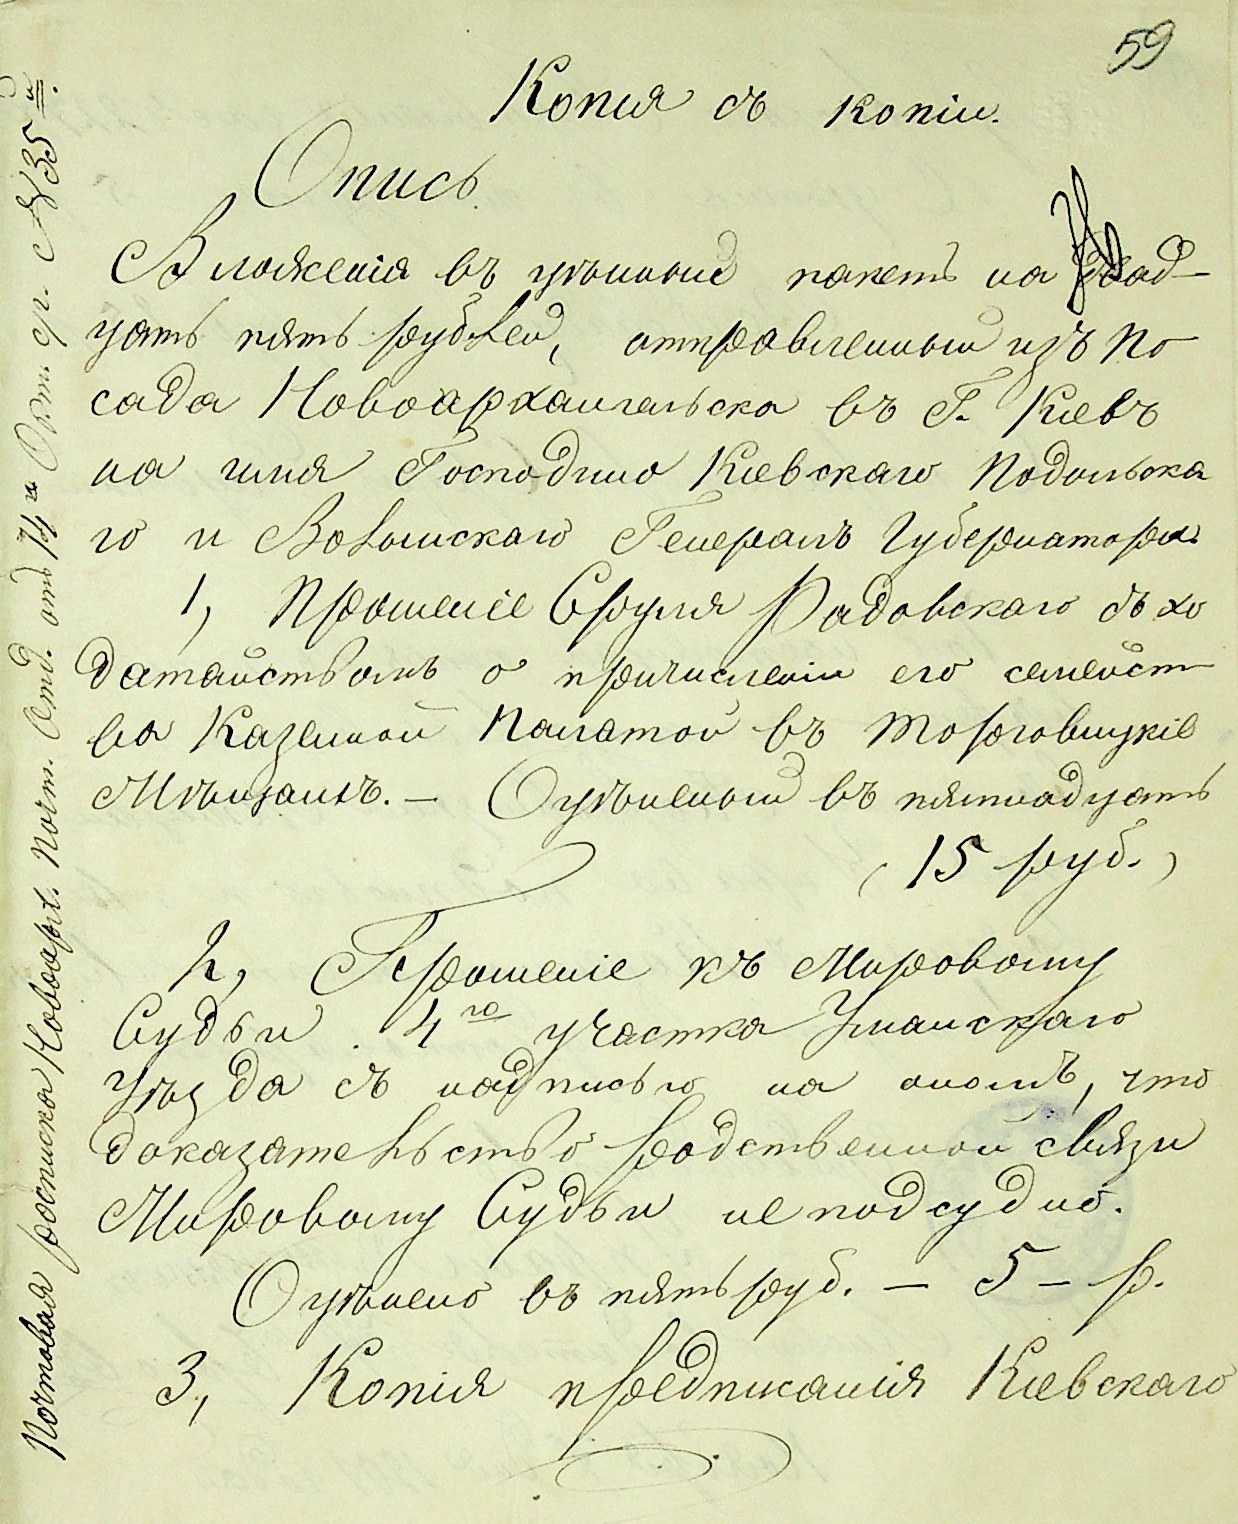 59
Копия съ копіи.
Опись
Вложенія въ цѣнный пакетъ на двад-
цать пять рублей, отправленный изъ По
сада Новоархангельска въ Г. Кіевъ
на имя Господина Кіевскаго Подольска
го и Волынскаго Генералъ Губернатора.
1, Прошеніе Сруля Радовскаго съ хо
датайствомъ о причисленіи его семейст
ва Казенной Палатой въ Торговицкіе
Мѣщане. — Оцѣненный въ пятнадцать
(15 руб.)
2, Прошеніе къ Мировому
Судьи 4го участка Уманскаго
Уѣзда съ надписью на ономъ, что
доказательство родственной связи
Мировому Судьи не подсудно.
Оцѣнено въ пять руб. — 5 — р.
3, Копія предписанія Кіевскаго
Почтовая росписка Новоарх. Почт. Отд. отъ 14го Окт. ср. №35й.